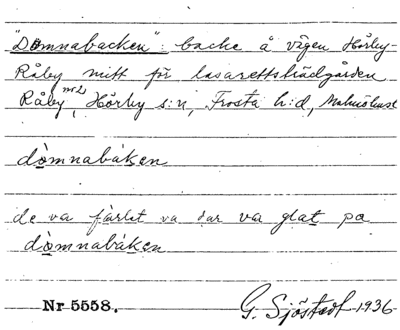 "Domnabacken": backe å vägen Hörby-
Råby mitt för lasarettsträdgården
Råby nr 2, Hörby s:n, Frosta h:d, Malmöhus l
dòmnabákɘn
de va fàrlit va dar va glat pɑ
dòmnabákɘn
Nr 5558.
G. Sjöstedt 1936